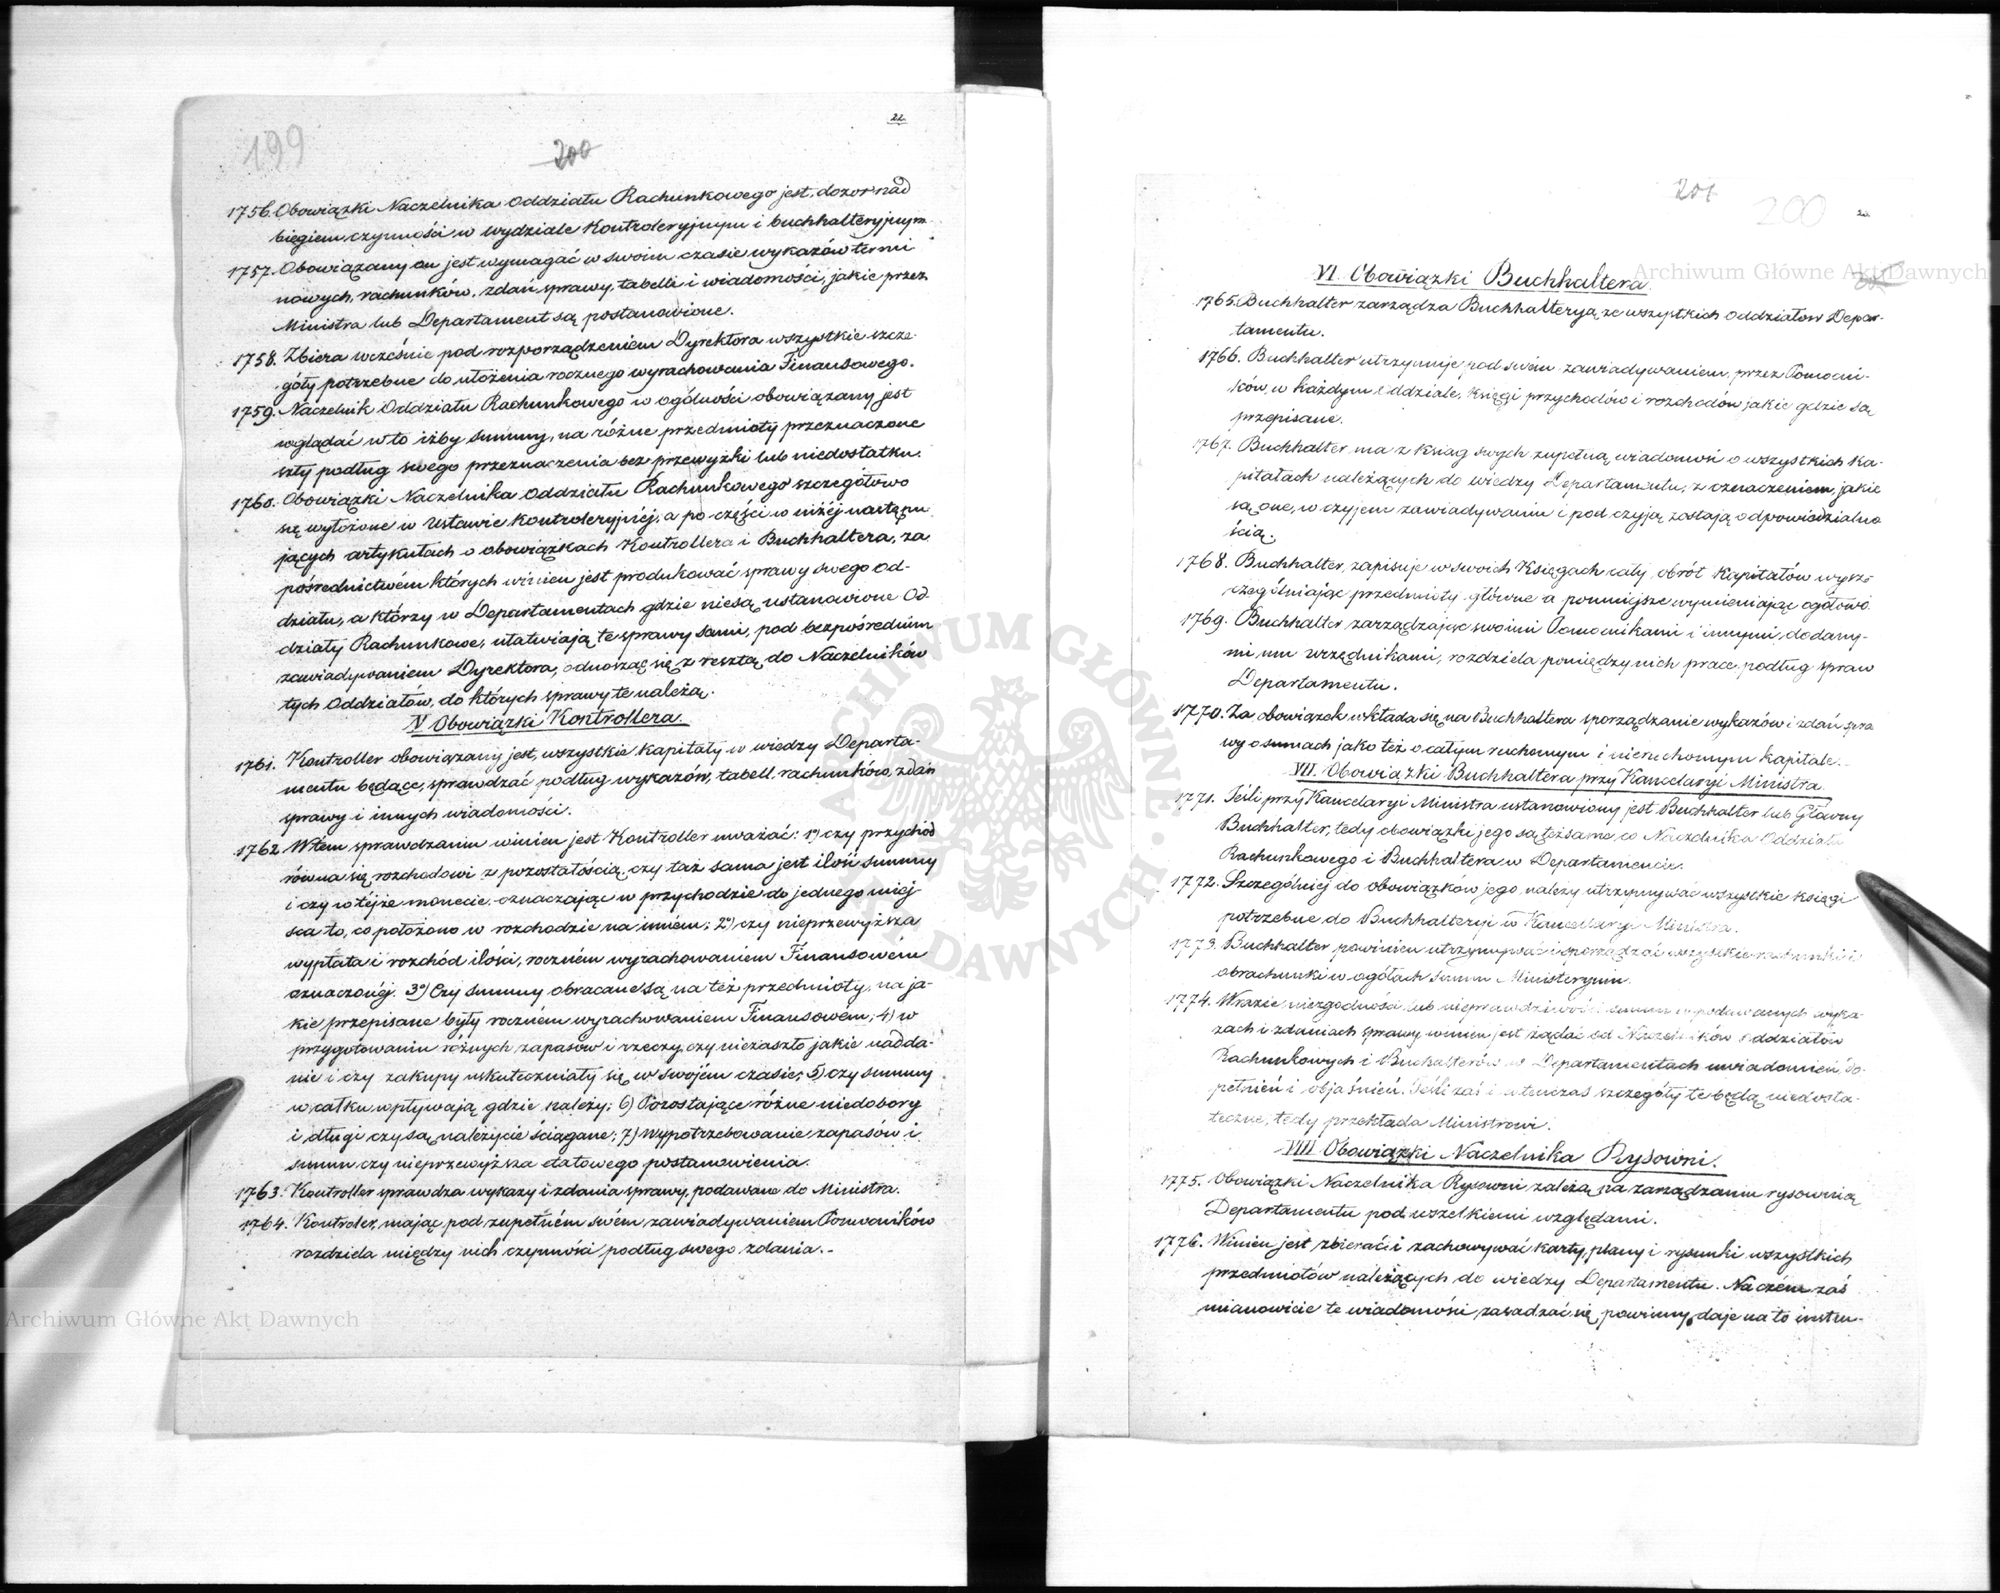 22.
199
200
1756. Obowiązki Naczelnika Oddziału Rachunkowego jest, dozor nad
biegiem czynności w wydziale Kontroleryjnym i buchhalteryjnym.
1757. Obowiązany on jest wymagać w swoim czasie wykazów termi
nowych, rachunków, zdań sprawy, tabelli i wiadomości, jakie przez
Ministra lub Departament są postanowione.
1758. Zbiera wcześnie pod rozporządzeniem Dyrektora wszystkie szcze-
góły potrzebne do ułożenia rocznego wyrachowania Finansowego.
1759. Naczelnik Oddziału Rachunkowego w ogólności obowiązany jest
wglądać w to iżby summy, na różne przedmioty przeznaczone
szły podług swego przeznaczenia bez przewyżki lub niedostatku.
1760. Obowiązki Naczelnika Oddziału Rachunkowego szczegółowo
są wyłożone w Ustawie Kontroleryjnéj, a po części w niżéj następu
jących artykułach o obowiązkach Kontrollera i Buchhaltera, za
pośrednictwem których winien jest produkować sprawy swego Od-
działu, a którzy w Departamentach gdzie niesą ustanowione Od-
działy Rachunkowe, ułatwiają te sprawy sami, pod bezpośredniém
zawiadywaniem Dyrektora, odnosząc się z resztą do Naczelników
tych Oddziałów, do których sprawy te należą.
V Obowiązki Kontrollera.
1761. Kontroller obowiązany jest, wszystkie kapitały w wiedzy Departa-
mentu będące, sprawdzać podług wykazów, tabell, rachunków, zdań
sprawy i innych wiadomości.
1762. W tem sprawdzaniu winien jest Kontroller uważać: 1) czy przychód
równa się rozchodowi z pozostałością, czy taż sama jest ilość summy
i czy w téjże monecie, oznaczając w przychodzie do jednego miej
sca to, co położono w rozchodzie na inném; 2) czy nieprzewyższa
wypłata i rozchód ilości, roczném wyrachowaniem Finansowém
oznaczonéj. 3) Czy summy obracane są na też przedmioty, na ja-
kie przepisane były roczném wyrachowaniem Finansowém; 4) w
przygotowaniu różnych zapasów i rzeczy, czy niezaszło jakie nadda-
nie i czy zakupy uskuteczniały się w swojém czasie; 5) czy summy
w całku wpływają gdzie należy; 6) Pozostające różne niedobory
i długi czy są należycie ściągane; 7) Wypotrzebowanie zapasów i
summ czy nieprzewyższa etatowego postanowienia.
1763. Kontroller sprawdza wykazy i zdania sprawy, podawane do Ministra.
1764. Kontroler, mając pod zupełném swém zawiadywaniem Pomocników
rozdziela między nich czynności podług swego zdania.-
201
200
VI. Obowiązki Buchhaltera.
1765. Buchhalter zarządza Buchhalteryą ze wszystkich oddziałów Depar-
tamentu.
1766. Buchhalter utrzymuje pod swém zawiadywaniem, przez Pomocni-
ków, w każdym Oddziale, Księgi przychodów i rozchodów jakie gdzie są
przepisane.
1767. Buchhalter, ma z Ksiąg swych zupełną wiadomość o wszystkich Ka-
pitałach należących do wiedzy Departamentu, z oznaczeniem, jakie
są one, w czyjem zawiadywaniu i pod czyją zostają odpowiedzialno
ścią.
1768. Buchhalter, zapisuje w swoich Księgach cały obrót Kapitałów wysz-
czególniając przedmioty główne a pomniejsze wymieniając ogółowo.
1769. Buchhalter zarządzając swoimi Pomocnikami i innymi, dodany-
mi mu urzędnikami, rozdziela pomiędzy nich prace, podług spraw
Departamentu.
1770. Za obowiązek wkłada się na Buchhaltera sporządzanie wykazów i zdań spra
wy o sumach jako też o całym ruchomym i nieruchomym kapitale.
VII. Obowiązki Buchhaltera przy Kancelaryi Ministra
1771. Jeśli przy Kancelaryi Ministra ustanowiony jest Buchhalter lub Główny
Buchhalter, tedy obowiązki jego są też same co Naczelnika Oddziału
Rachunkowego i Buchhaltera w Departamencie.
1772. Szczególniej do obowiązków jego należy utrzymywać wszystkie księgi
potrzebne do Buchhalteryi w Kancellaryi Ministra.
1773. Buchhalter powinien utrzymywać i sporządzać wszystkie rachunki i
obrachunki w ogółach summ Ministeryum.
1774. W razie niezgodności lub nieprawdziwości summ w podawanych wyka-
zach i zdaniach sprawy winien jest żądać od Naczelników Oddziałów
Rachunkowych i Buchalterów w Departamentach uwiadomień, do-
pełnień i objaśnień. Jeśli zaś i wtenczas szczegóły te będą niedosta-
teczne, tedy przekłada Ministrowi.
VIII Obowiązki Naczelnika Rysowni.
1775. Obowiązki Naczelnika Rysowni zależą na zarządzaniu rysownią
Departamentu pod wszelkiemi względami.
1776. Winien jest zbierać i zachowywać karty, plany i rysunki wszystkich
przedmiotów należących do wiedzy Departamentu. Na czém zaś
mianowicie te wiadomości zasadzać się powinny, daje na to instru-
Archiwum Główne Akt Dawnych
Archiwum Główne Akt Dawnych
ARCHIWUM GŁÓWNE AKT DAWNYCH